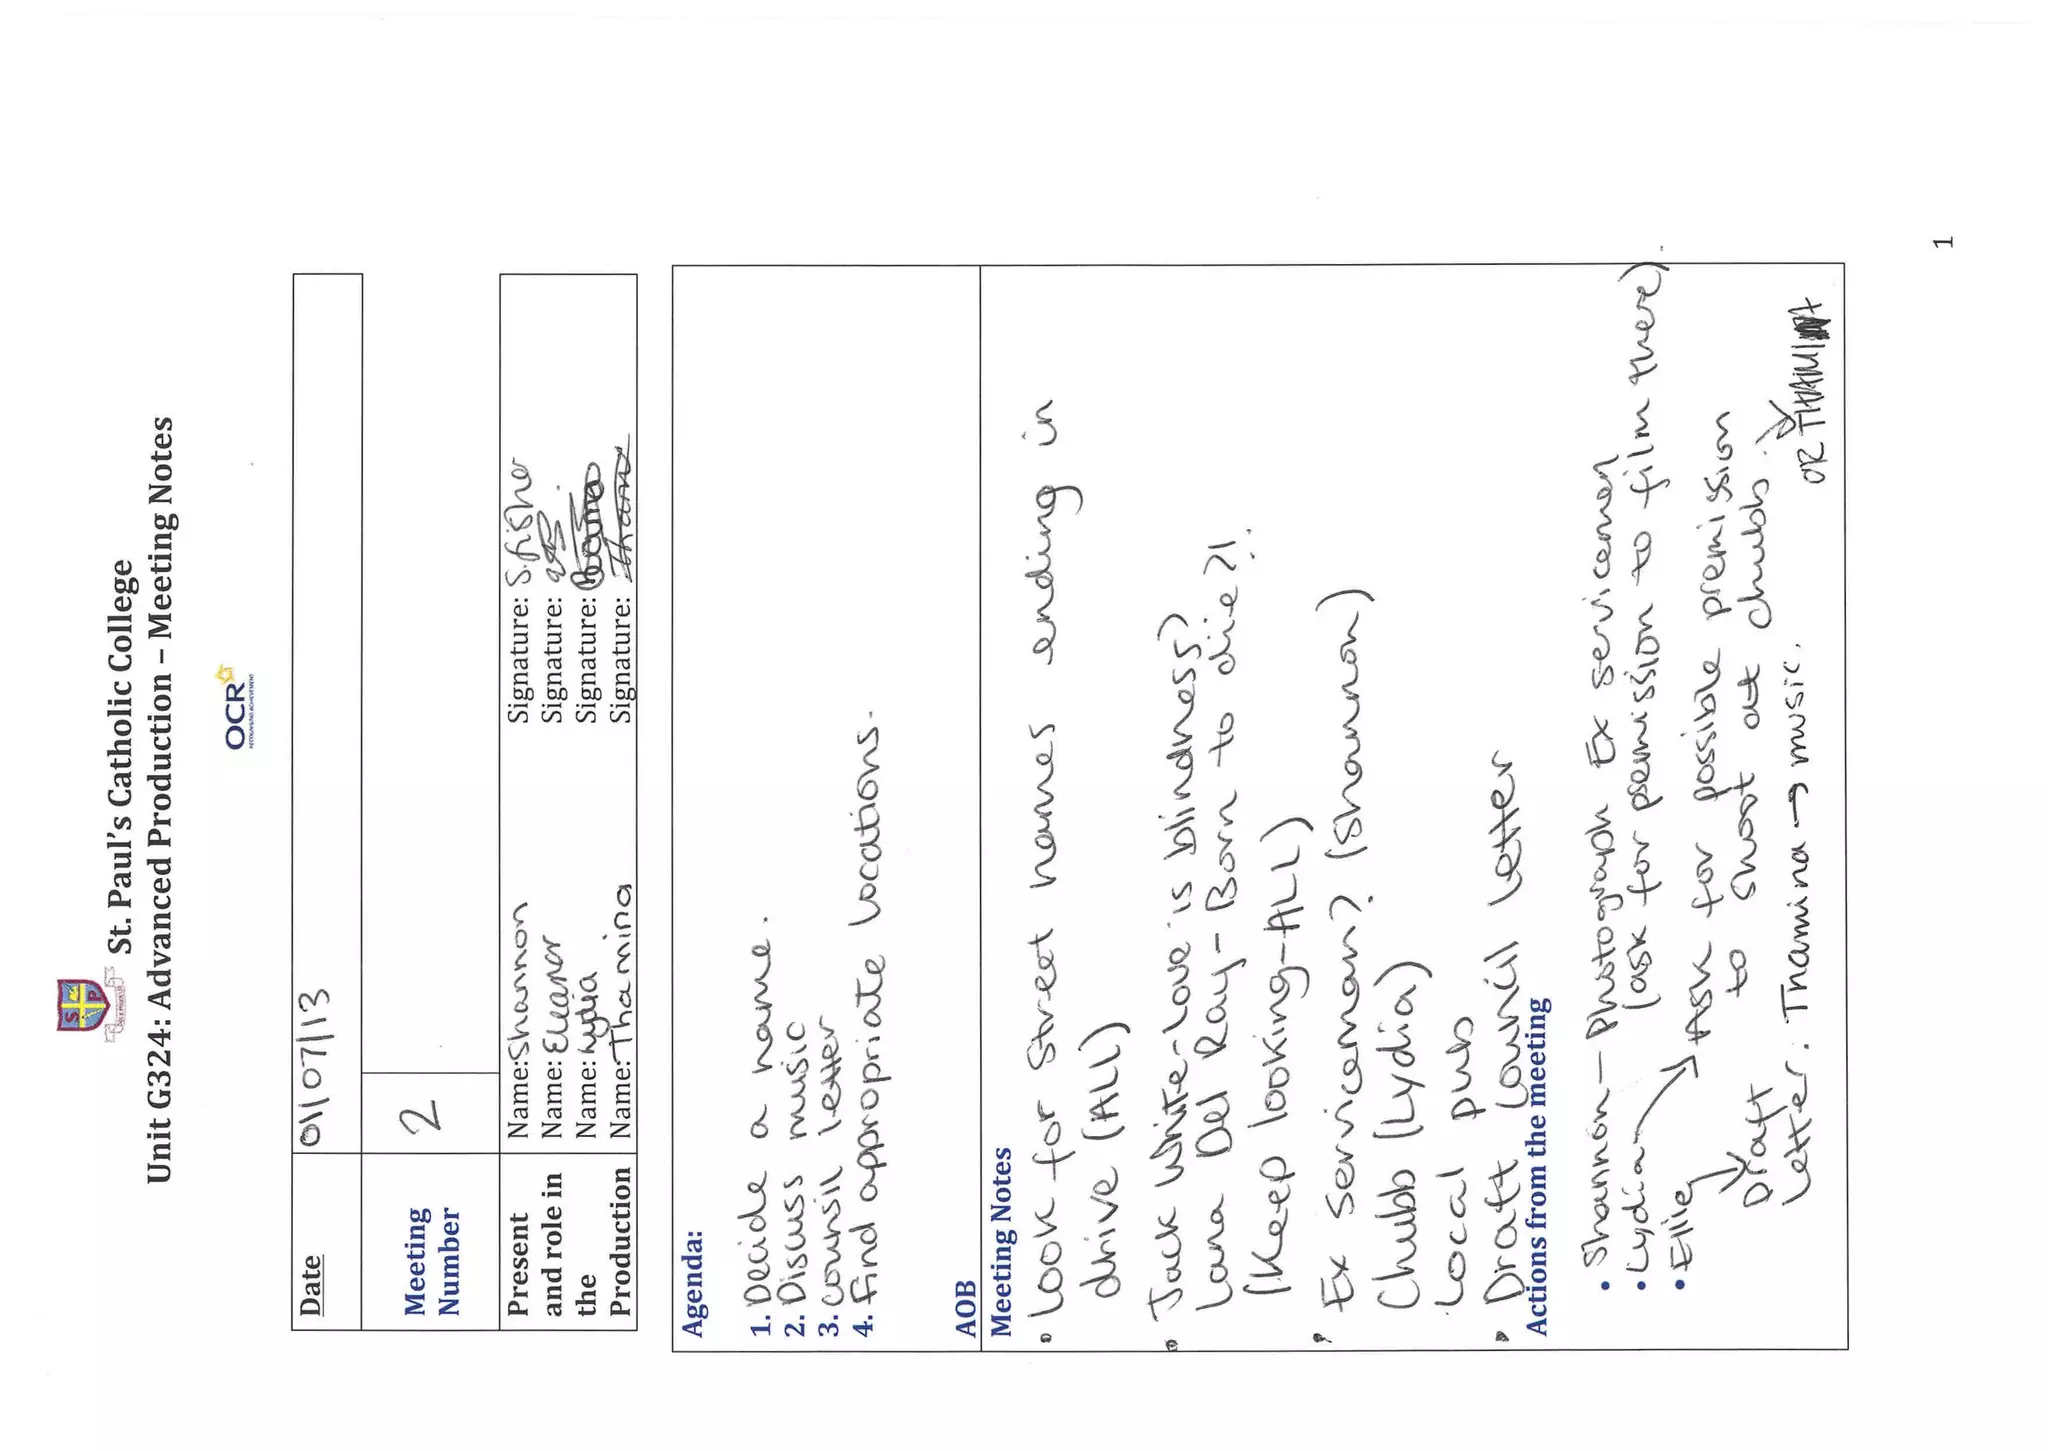 St. Paul's Catholic College
Unit G324: Advanced Production – Meeting Notes
S P
OCR
RECOGNISING ACHIEVEMENT
Date 01/07/13
Meeting Number 2
Present and role in the Production
Name: Shannon Signature: S.fisher
Name: Eleanor Signature:
Name: Lydia Signature:
Name: Thamina Signature: Thamina
Agenda:
1. Decide a name.
2. Discuss music
3. counsil letter
4. Find appropriate locations.
AOB
Meeting Notes
• Look for street names ending in
drive (ALL)
• Jack White-Love is blindness?
Lana Del Ray - Born to die?!
(Keep looking-ALL)
• Ex Serviceman? (Shannon)
Chubb (Lydia)
Local pub
• Draft Council letter
Actions from the meeting
• Shannon - Photograph Ex servicemen
(ask for permission to film there)
• Lydia → Ask for possible premission
• Ellie to shoot at chubbs.
Draft
letter. Thamina → music.
OR